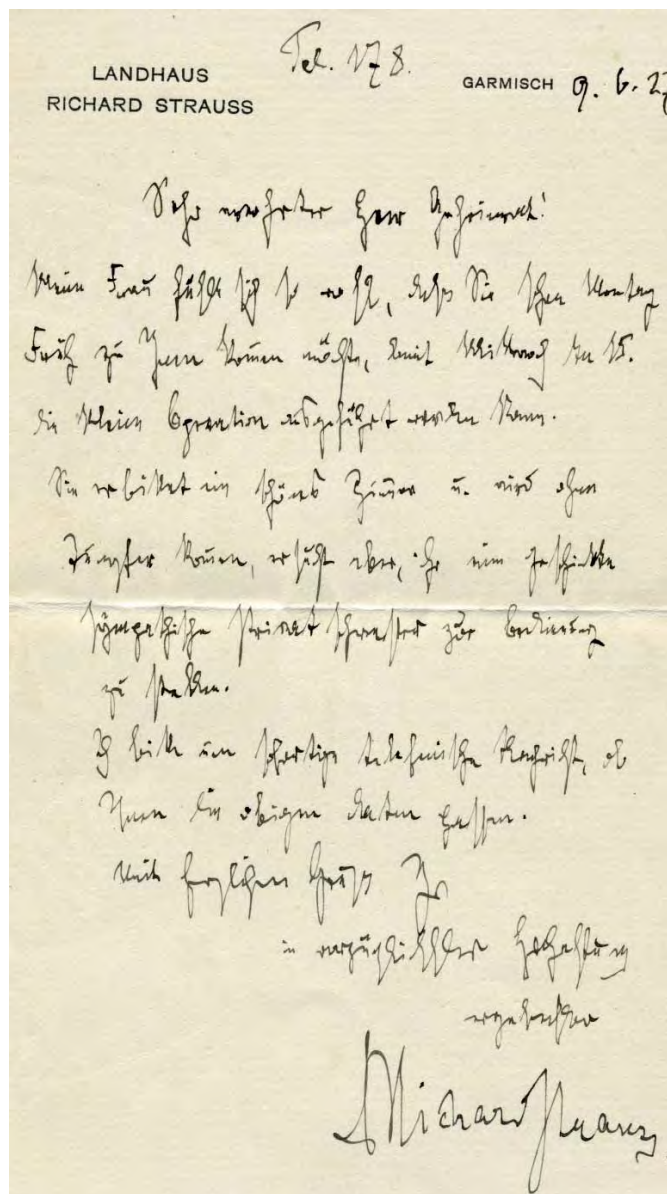 Tel. 178.
LANDHAUS
RICHARD STRAUSS
GARMISCH 9. 6. 27
Sehr verehrter Herr Geheimrat!
Meine Frau fühlt sich so wohl, dass Sie schon Montag
Früh zu Ihnen kommen möchte, damit Mittwoch den 15.
die kleine Operation ausgeführt werden kann.
Sie erbittet ein schönes Zimmer u. wird ohne
Jungfer kommen, ersucht aber, ihr eine geschickte
sympathische Privatschwester zur Bedienung
zu stellen.
Ich bitte um sofortige telefonische Nachricht, ob
Ihnen die obigen Daten passen.
Mit herzlichen Grüssen Ihr
in vorzüglichster Hochachtung
ergebenster
Richard Strauss